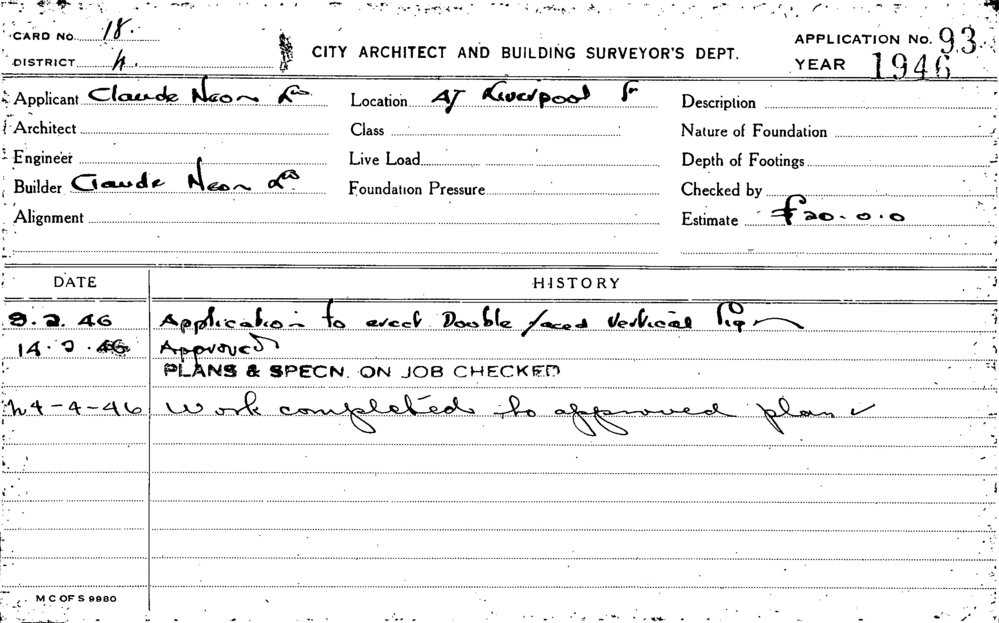 CARD No. 18.
DISTRICT 4.
CITY ARCHITECT AND BUILDING SURVEYOR'S DEPT.
APPLICATION No. 93
YEAR 1946
Applicant Claude Neon Ld
Location 47 Liverpool St
Description
Architect
Class
Nature of Foundation
Engineer
Live Load
Depth of Footings
Builder Claude Neon Ld
Foundation Pressure
Checked by
Alignment
Estimate £20.0.0
DATE HISTORY
Application to erect Double faced Vertical Sign
14.2.46 Approved
PLANS & SPECN. ON JOB CHECKED
4-4-46 Work completed to approved plan
M C OF S 9980